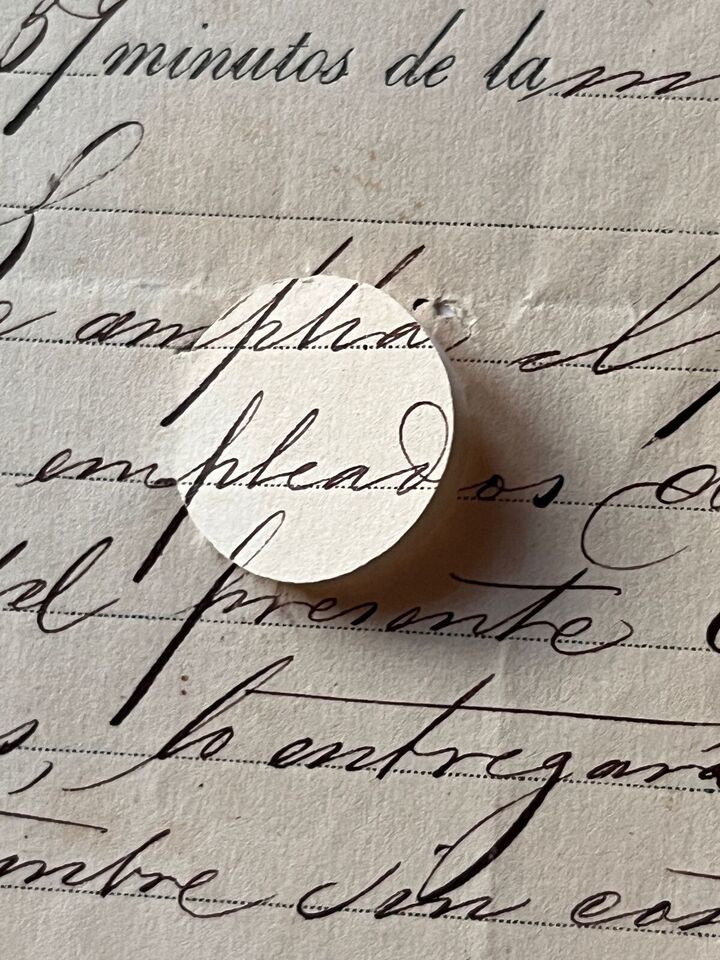 57 minutos de la m
amplia el p
empleados
del presente
lo entregará
mbre sin con